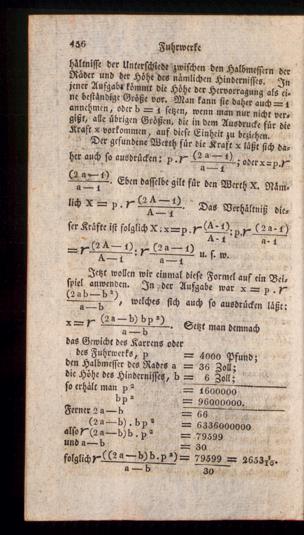 456 Fuhrwerke
hältnisse der Unterschiede zwischen den Halbmessern der
Räder und der Höhe des nämlichen Hindernisses. In
jener Aufgabe kömmt die Höhe der Hervorragung als ei-
ne beständige Größe vor. Man kann sie daher auch = 1
annehmen, oder b = 1 setzen, wenn man nur nicht ver-
gißt, alle übrigen Größen, die in dem Ausdrucke für die
Kraft x vorkommen, auf diese Einheit zu beziehen.
Der gefundene Werth für die Kraft x läßt sich da-
her auch so ausdrücken: p.r (2a—1) / a—1; oder x=p.r
(2a—1) / a—1. Eben dasselbe gilt für den Werth X. Näm-
lich X = p.r (2A—1) / A—1. Das Verhältniß die-
ser Kräfte ist folglich X:x=p.r (2A-1) / A-1 : p.r (2a-1) / a-1
= r (2A—1) / A—1 : r (2a—1) / a—1 u. s. w.
Jetzt wollen wir einmal diese Formel auf ein Bei-
spiel anwenden. In der Aufgabe war x = p.r
(2ab—b²) / a—b, welches sich auch so ausdrücken läßt:
x = r (2a—b) bp²) / a—b. Setzt man demnach
das Gewicht des Karrens oder
des Fuhrwerks, p = 4000 Pfund;
den Halbmesser des Rades a = 36 Zoll;
die Höhe des Hindernisses, b = 6 Zoll;
so erhält man p² = 1600000
bp² = 96000000.
Ferner 2a—b = 66
(2a—b).bp² = 6336000000
also r (2a—b) b.p² = 79599
und a—b = 30
folglich r ((2a—b) b.p²) / a—b = 79599 / 30 = 2653 3/10.